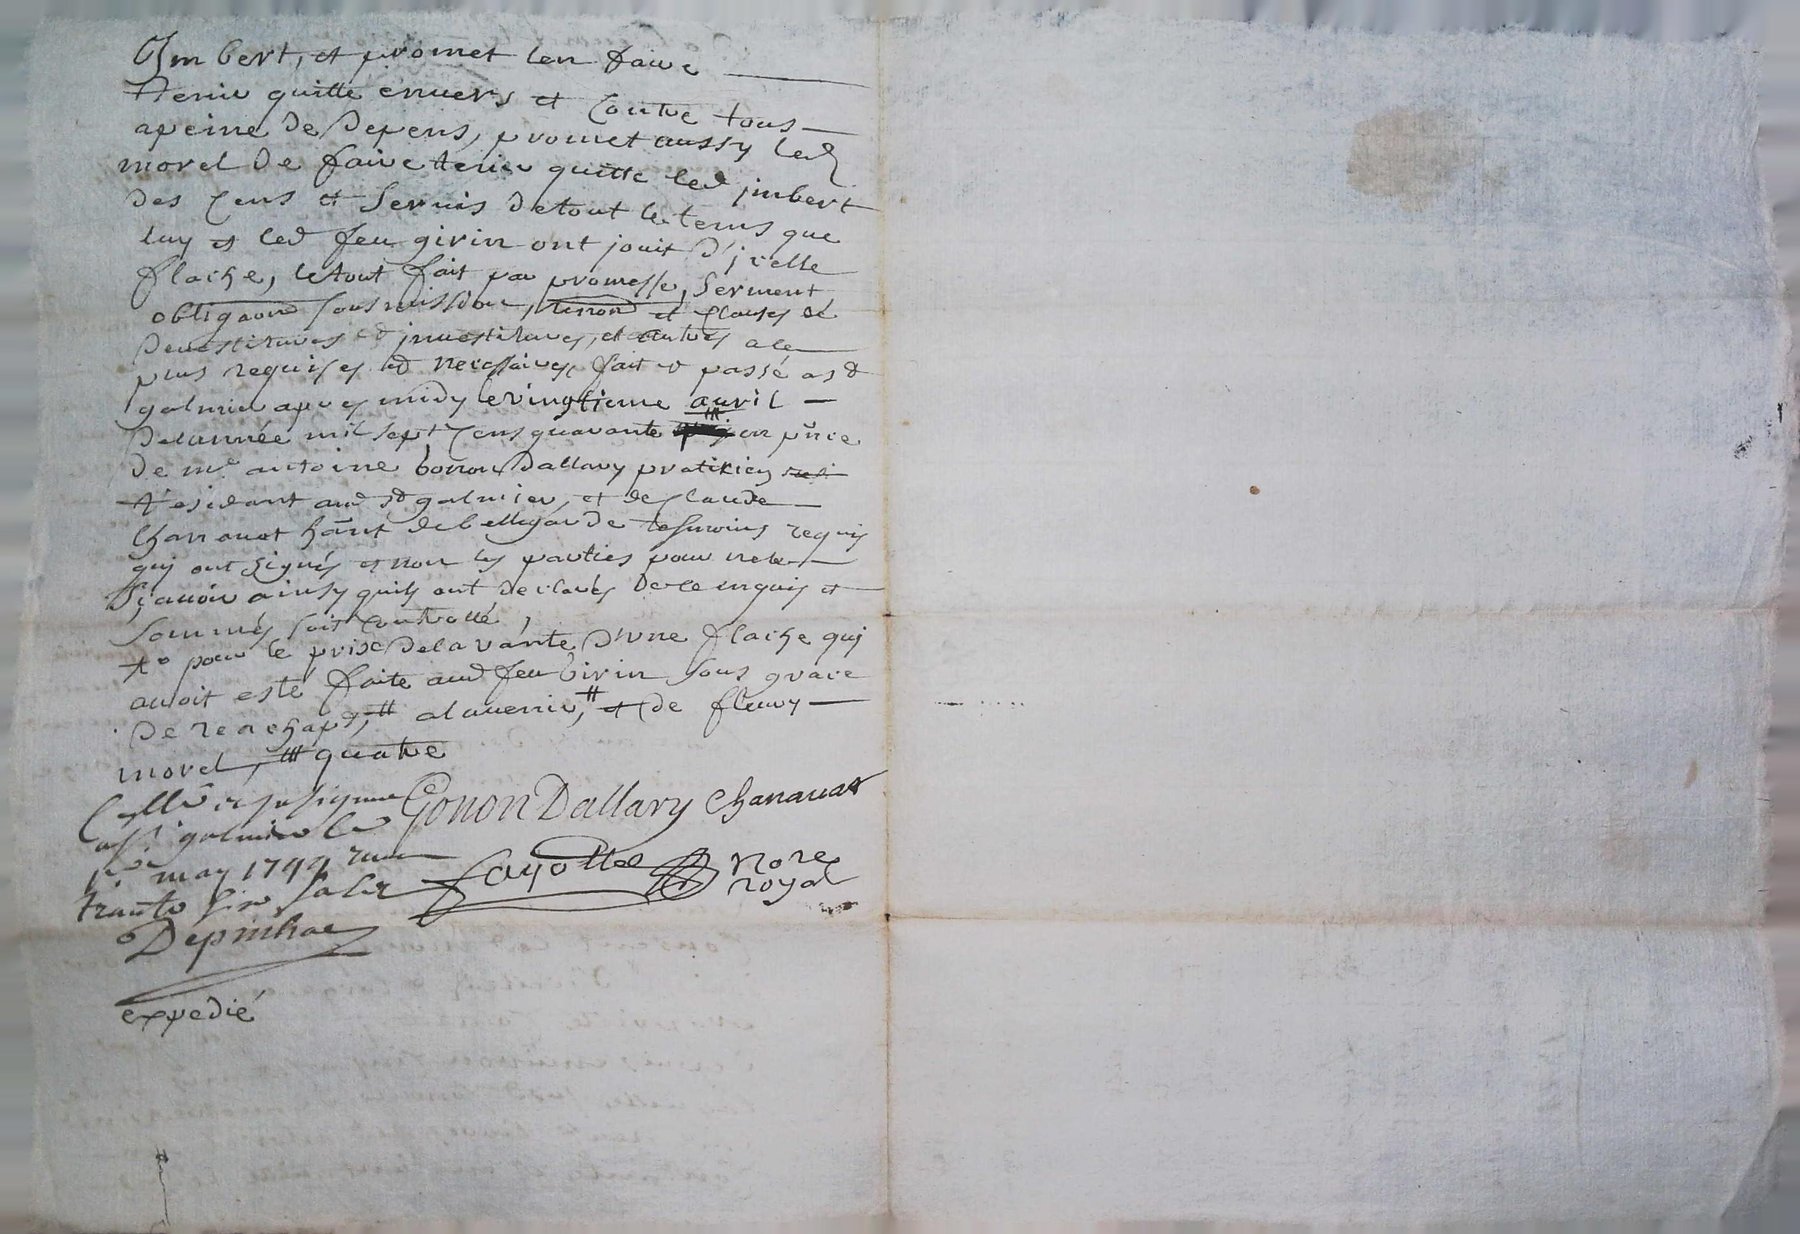 Jmbert, et promet len faire
tenir quitte envers et contre tous
apeine de depens, promet aussy led
morel de faire tenir quitte led jmbert
des cens et servis detout le tems que
luy et led feu girin ont jouit d'jcelle
flache, letout fait par promesse, serment
obligaon soumission, renon et clauses de
devestitures et jnvestitures, et autres ale
plus requises et necessaires, fait et passé a st
galmier apres midy levingtieme avril
delannée mil sept cens quarante en pnce
de me antoine gonon Dallary praticien
residant aud st galmier, et de claude
Chanauat hant de bellegarde tesmoins requis
qui ont signés et non les parties pour nele
sçauoir ainsy quils ont declarés de ce enquis et
sommés soit controllé,
+ pour le prix delavante d'une flache quj
auoit esté faite aud feu Girin sous grace
de reachapt, # alauenir, # et de fleury
morel, ## quatre
Gonon Dallary Chanauat
st galmier le
may 1744
Fayolle Nore
royal
expedié